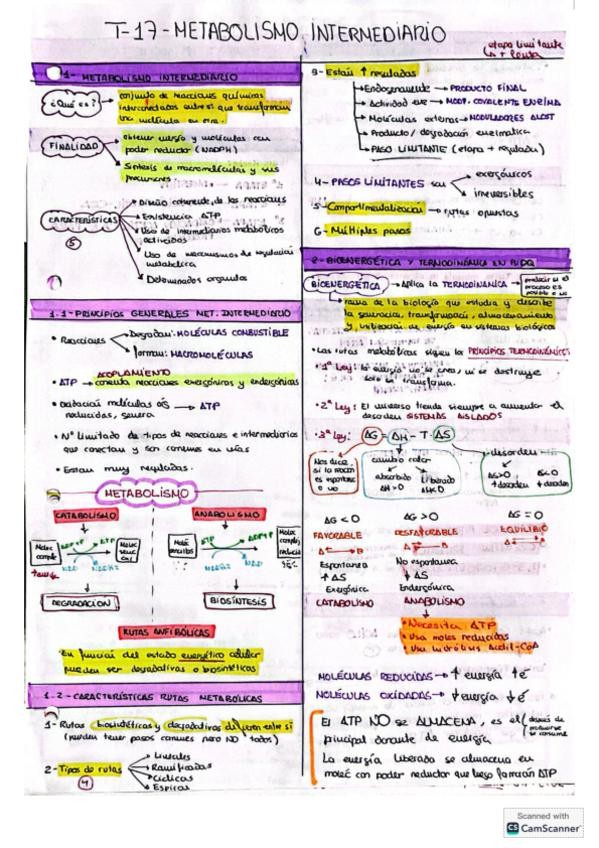 T-17-METABOLISMO INTERMEDIARIO
etapa limitante
1- METABOLISMO INTERMEDIARIO
¿Qué es?
conjunto de reacciones químicas
interconectadas entre sí que transforman
una molécula en otra.
FINALIDAD
obtener energía y moléculas con
poder reductor (NADPH)
Síntesis de macromoléculas y sus
precursores.
CARACTERÍSTICAS
5
Diseño coherente de las reacciones
Existencia ATP
Uso de intermediarios metabólicos
activados
Uso de mecanismos de regulación
metabólica
Determinados orgánulos
1.1-PRINCIPIOS GENERALES MET. INTERMEDIARIO
• Reacciones
Degradan: MOLÉCULAS COMBUSTIBLE
forman: MACROMOLÉCULAS
ACOPLAMIENTO
• ATP → conecta reacciones exergónicas y endergónicas
• Oxidación moléculas
reducidas, genera → ATP
• Nº limitado de tipos de reacciones e intermediarios
que conectan y son comunes en vías
• Están muy reguladas.
METABOLISMO
CATABOLISMO
ANABOLISMO
DEGRADACIÓN
BIOSÍNTESIS
RUTAS ANFIBÓLICAS
En función del estado energético celular
pueden ser degradativas o biosintéticas
1.2-CARACTERÍSTICAS RUTAS METABÓLICAS
1- Rutas biosintéticas y degradativas difieren entre sí
(pueden tener pasos comunes pero NO todos)
2- Tipos de rutas
4
Lineales
Ramificadas
Cíclicas
Espiral
3- Están ↑ reguladas
Endogenamente → PRODUCTO FINAL
Actividad enz → MODF. COVALENTE ENZIMA
Moléculas externas → MODULADORES ALOST
Producto / degradación enzimática
PASO LIMITANTE (etapa + regulada)
4- PASOS LIMITANTES son
exergónicos
irreversibles
5- Compartimentalización → rutas opuestas
6- Múltiples pasos
2- BIOENERGÉTICA Y TERMODINÁMICA EN BIOQ
BIOENERGÉTICA → Aplica la TERMODINÁMICA →
predecir si el
proceso es
posible o no
rama de la biología que estudia y describe
la generación, transformación, almacenamiento
y utilización de energía en sistemas biológicos
• Las rutas metabólicas siguen los PRINCIPIOS TERMODINÁMICOS
• 1ª Ley: la energía no se crea, ni se destruye
solo se transforma.
• 2ª Ley: El universo tiende siempre a aumentar el
desorden SISTEMAS AISLADOS
• 3ª Ley: ΔG = ΔH - T · ΔS
Nos dice
si la reacción
es espontánea
o no
cambio calor
absorbido
ΔH > 0
liberado
ΔH < 0
desorden
ΔS>0
+ desorden
ΔS<0
↓ desorden
ΔG < 0
ΔG > 0
ΔG = 0
FAVORABLE
DESFAVORABLE
EQUILIBRIO
Espontánea
No espontánea
↑ ΔS
↓ ΔS
Exergónica
Endergónica
CATABOLISMO
ANABOLISMO
• Necesita ATP
• Usa moles reducidas
• Usa hidrólisis Acetil-CoA
MOLÉCULAS REDUCIDAS → ↑ energía ↑ e⁻
MOLÉCULAS OXIDADAS → ↓ energía ↓ e⁻
El ATP NO se ALMACENA, es el
después de
producirse
se consume
principal donante de energía
La energía liberada se almacena en
moléc con poder reductor que luego forman ATP
Scanned with
CS CamScanner